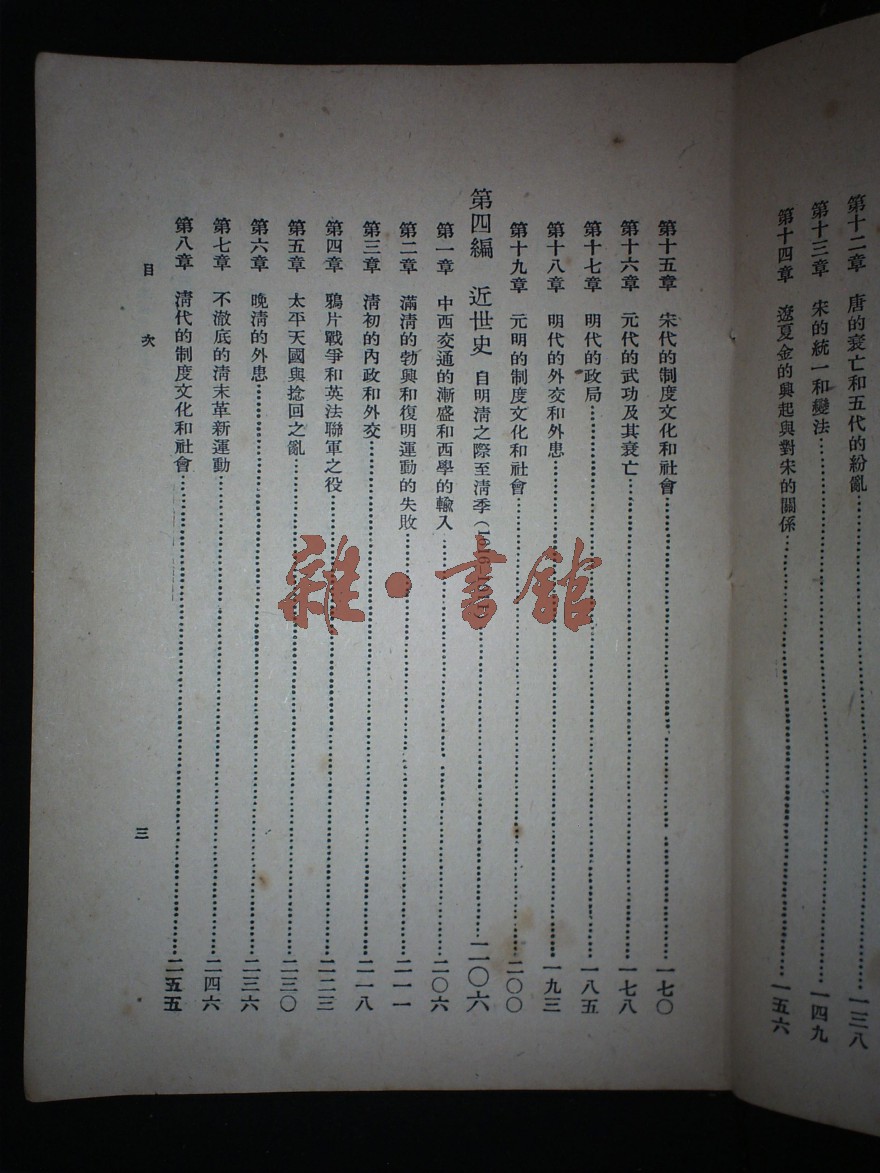 第十二章　唐的衰亡和五代的紛亂……一三八
第十三章　宋的統一和變法……一四九
第十四章　遼夏金的興起與對宋的關係……一五六
第十五章　宋代的制度文化和社會……一七〇
第十六章　元代的武功及其衰亡……一七八
第十七章　明代的政局……一八五
第十八章　明代的外交和外患……一九三
第十九章　元明的制度文化和社會……二〇〇
第四編　近世史　自明清之際至清季(1616-1911)……二〇六
第一章　中西交通的漸盛和西學的輸入……二〇六
第二章　滿清的勃興和復明運動的失敗……二一一
第三章　清初的內政和外交……二一八
第四章　鴉片戰爭和英法聯軍之役……二二三
第五章　太平天國與捻回之亂……二三〇
第六章　晚清的外患……二三六
第七章　不澈底的清末革新運動……二四六
第八章　清代的制度文化和社會……二五五
目次
三
雜·書館